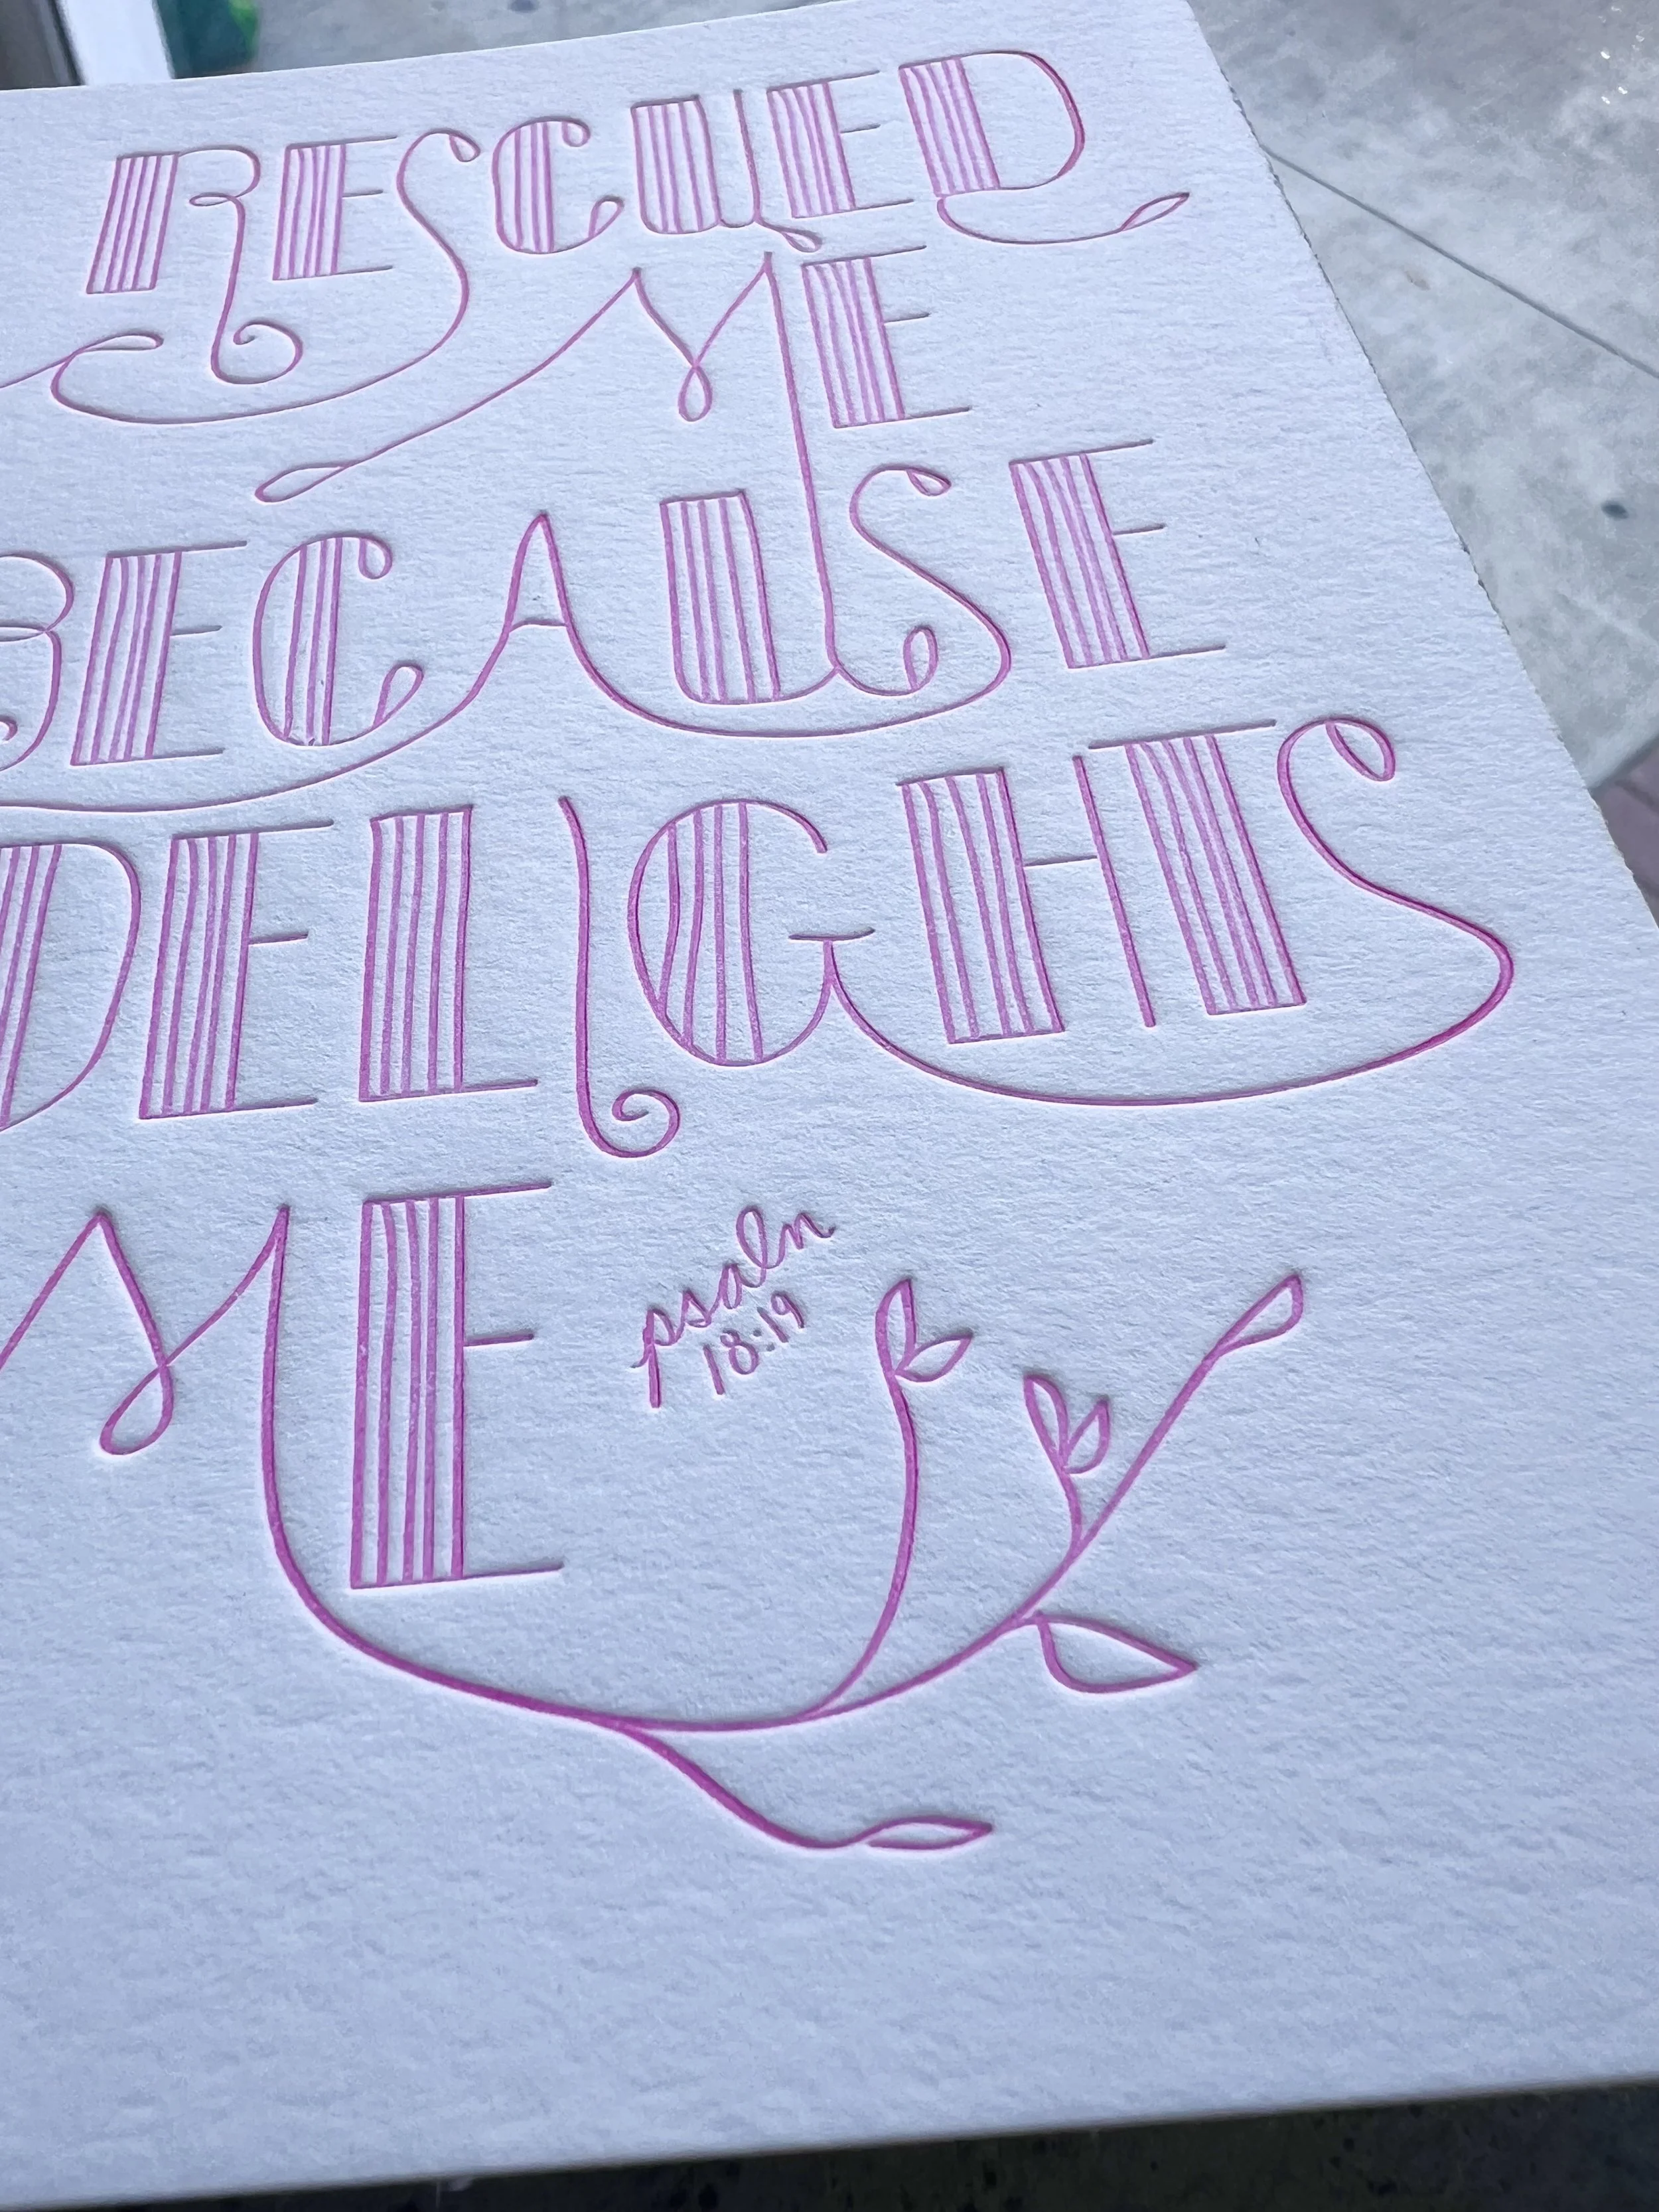 RESCUED
ME
BECAUSE
DELIGHTS
ME
psalm
18:19